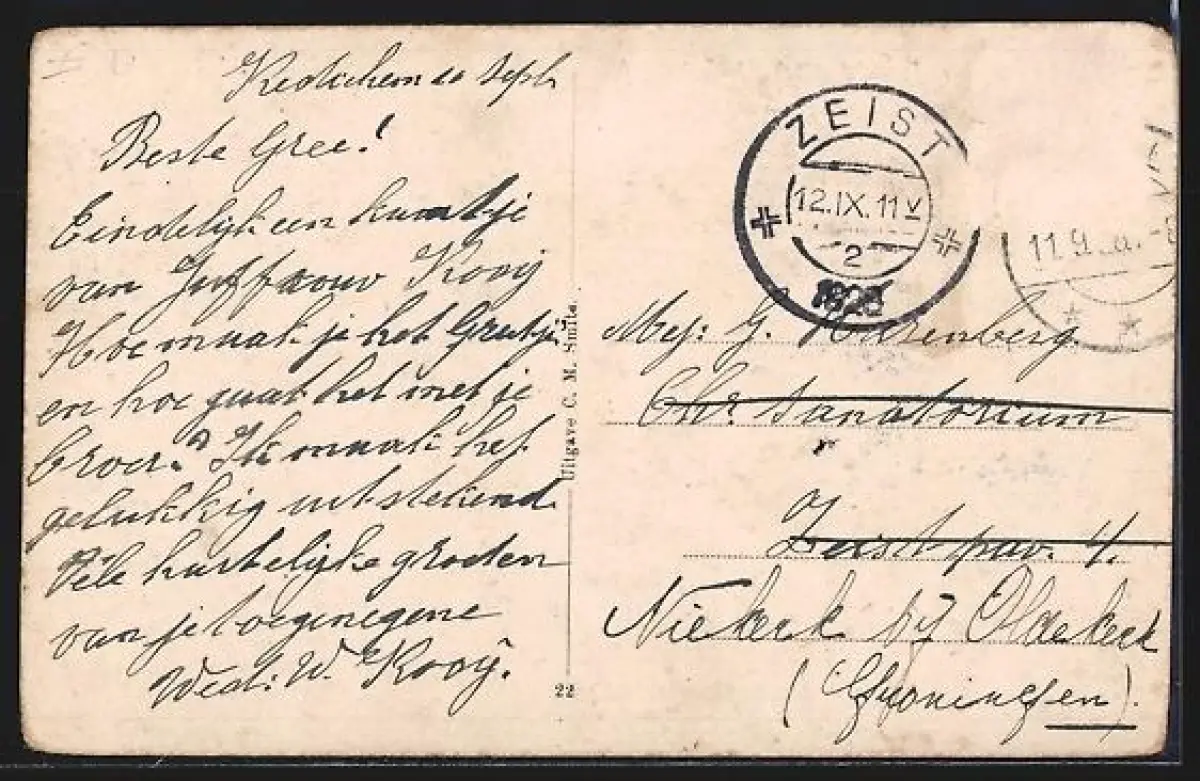 Kedichem 10 Sept.
Beste Gree!
Eindelijk een kaartje
van Juffrouw Kooij
Hoe maak je het Greetje?
en hoe gaat het met je
broer? Ik maak het
gelukkig uitstekend.
Vele hartelijke groeten
van je toegenegene
Wed: W. Kooij.
Uitgave C. M. Smits.
22
ZEIST
12.IX.11V
2
11.9
Mej: G.
Chr Sanatorium
Zeist pav. 4.
Niekerk bij Oldekerk
(Groningen).